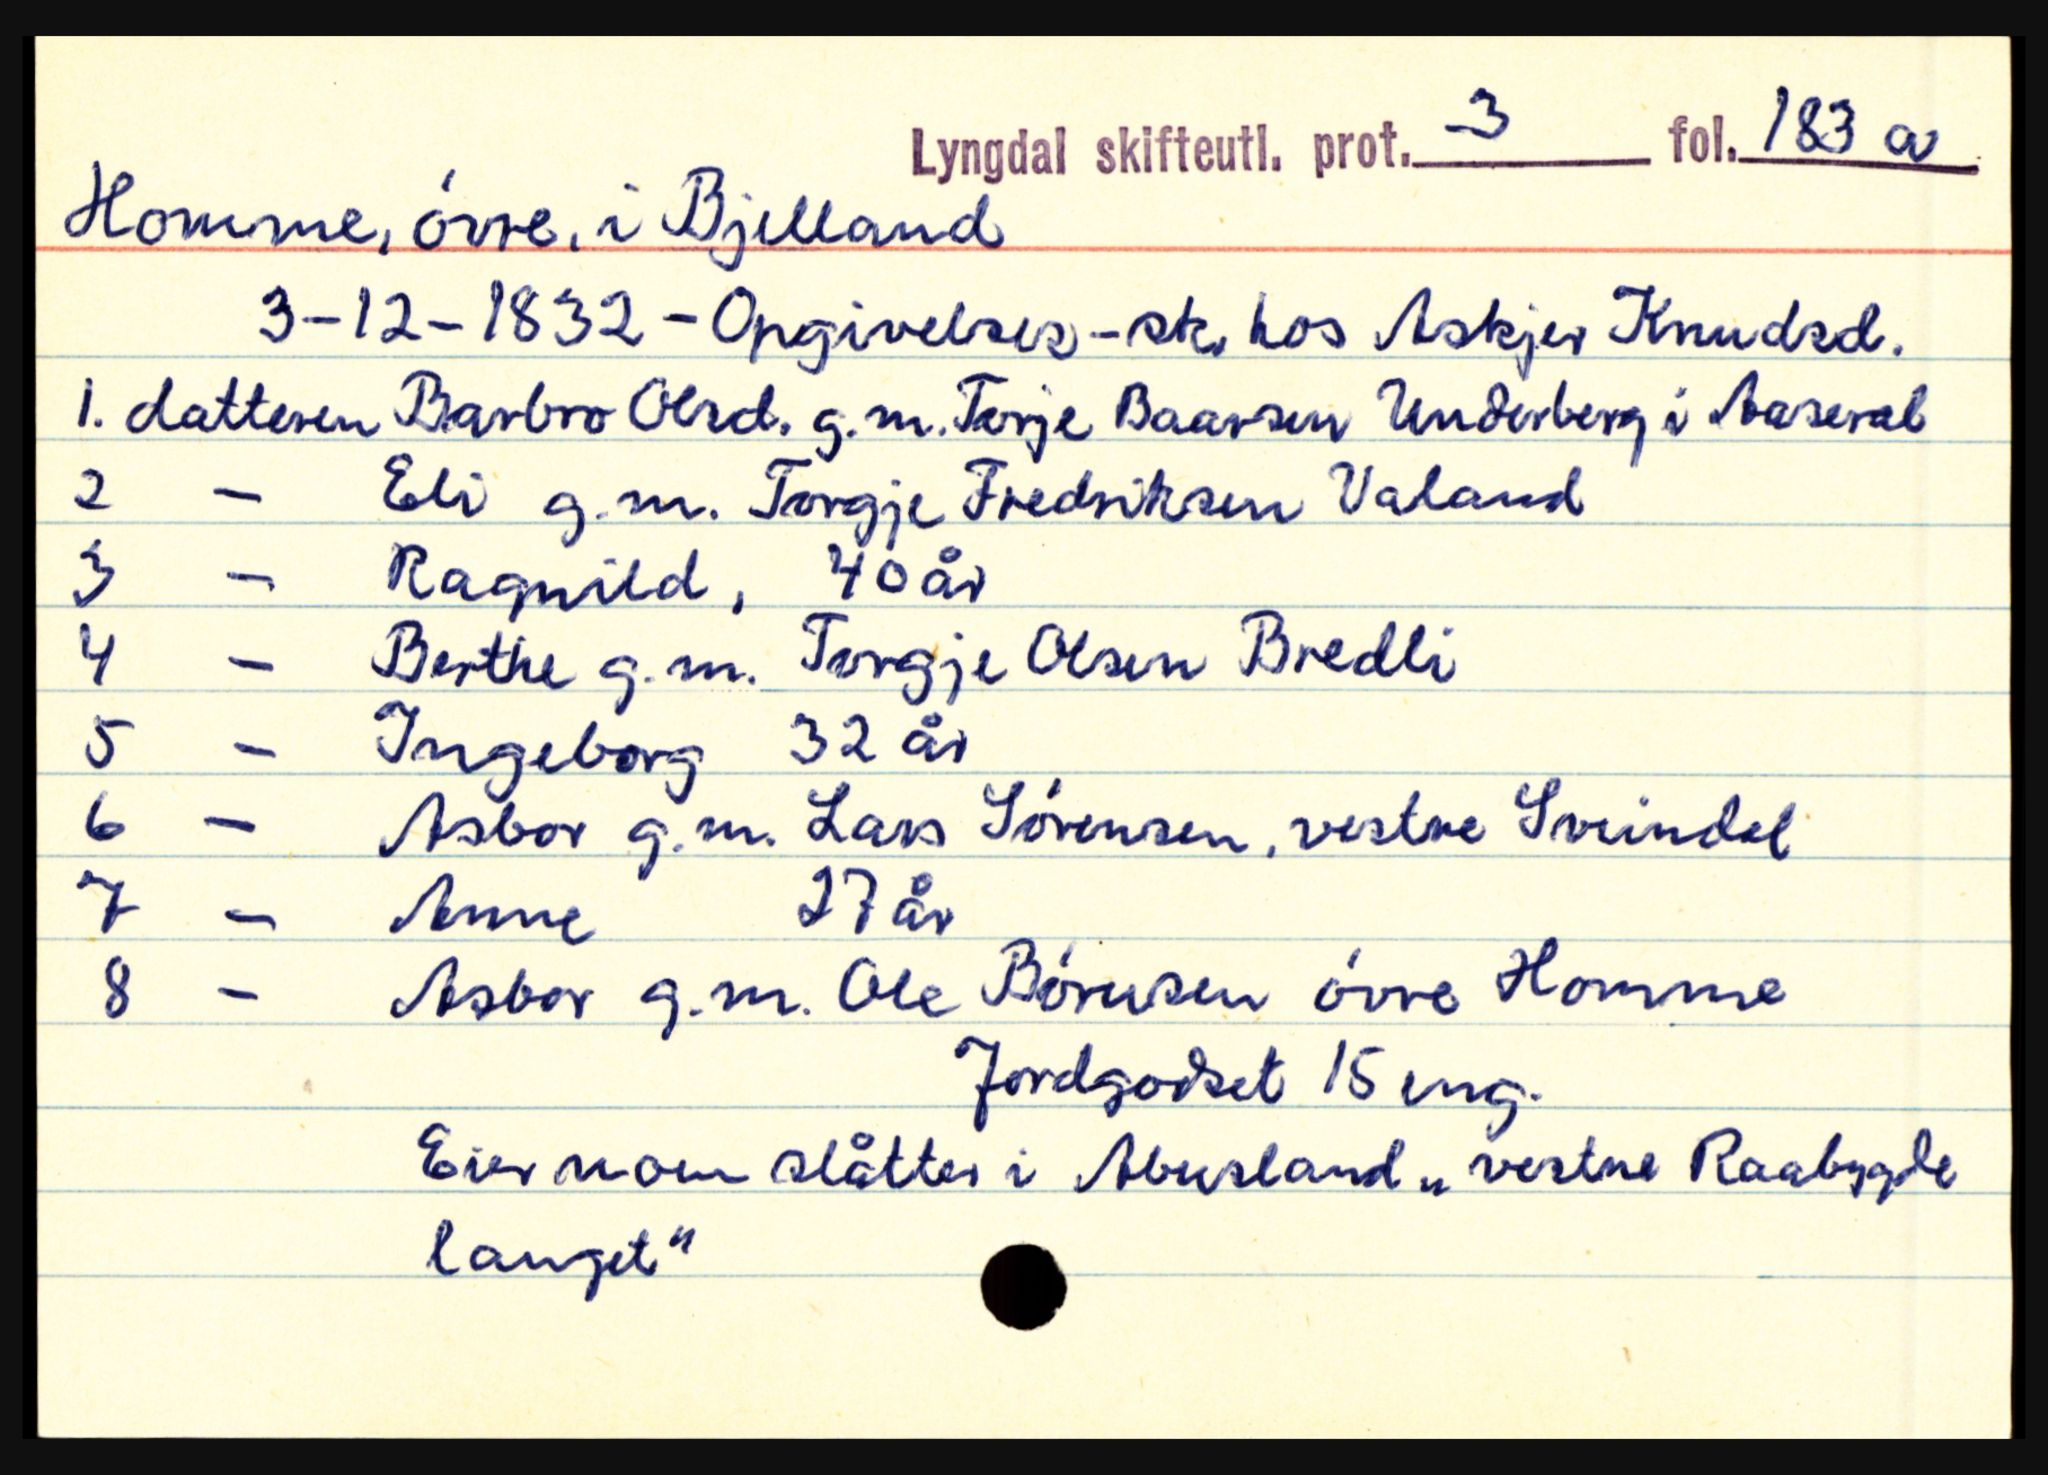 Lyngdal skifteutl. prot. 3 fol. 183 a
Homme, óvre, i Bjelland
3-12-1832 - Opgivelses-sk. hos Askjer Knudsd.
1. datteren Barbro Olsd. g.m. Terje Baarsen Underberg i Aaseral
2 - Eli g.m. Torgje Fredriksen Valand
3 - Ragnild, 40 år
4 - Berthe g.m. Torgje Olsen Bredli
5 - Ingeborg 32 år
6 - Asbor g.m. Lars Sórensen, vestre Sveindal
7 - Anne 27 år
8 - Asbor g.m. Ole Bórusen óvre Homme
Jordgodset 15 eng.
Eier noen slåtter i Abusland „vestre Raabygde
lauget"